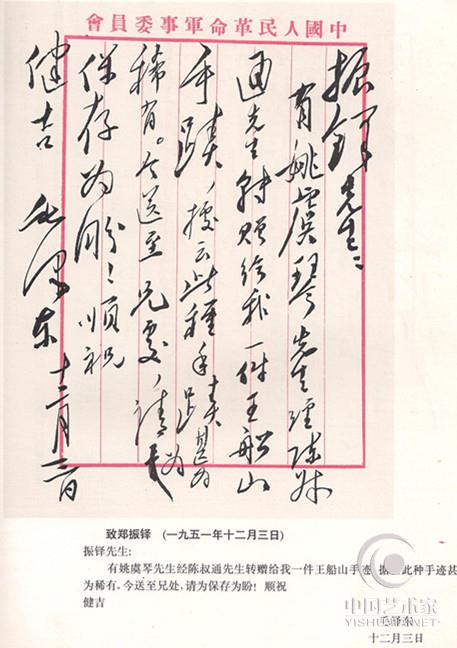 中國人民革命軍事委員會
振鐸先生：
有姚虞琴先生經陳叔
通先生轉贈給我一件王船山
手蹟，據云此種手蹟甚为
稀有。今送至兄處，請为
保存为盼！順祝
健吉 毛澤东 十二月三日
致郑振铎 (一九五一年十二月三日)
振铎先生：
有姚虞琴先生经陈叔通先生转赠给我一件王船山手迹，据此种手迹甚
为稀有，今送至兄处，请为保存为盼！顺祝
健吉
毛泽东
十二月三日
中国艺术家
YISHUJIE.NET